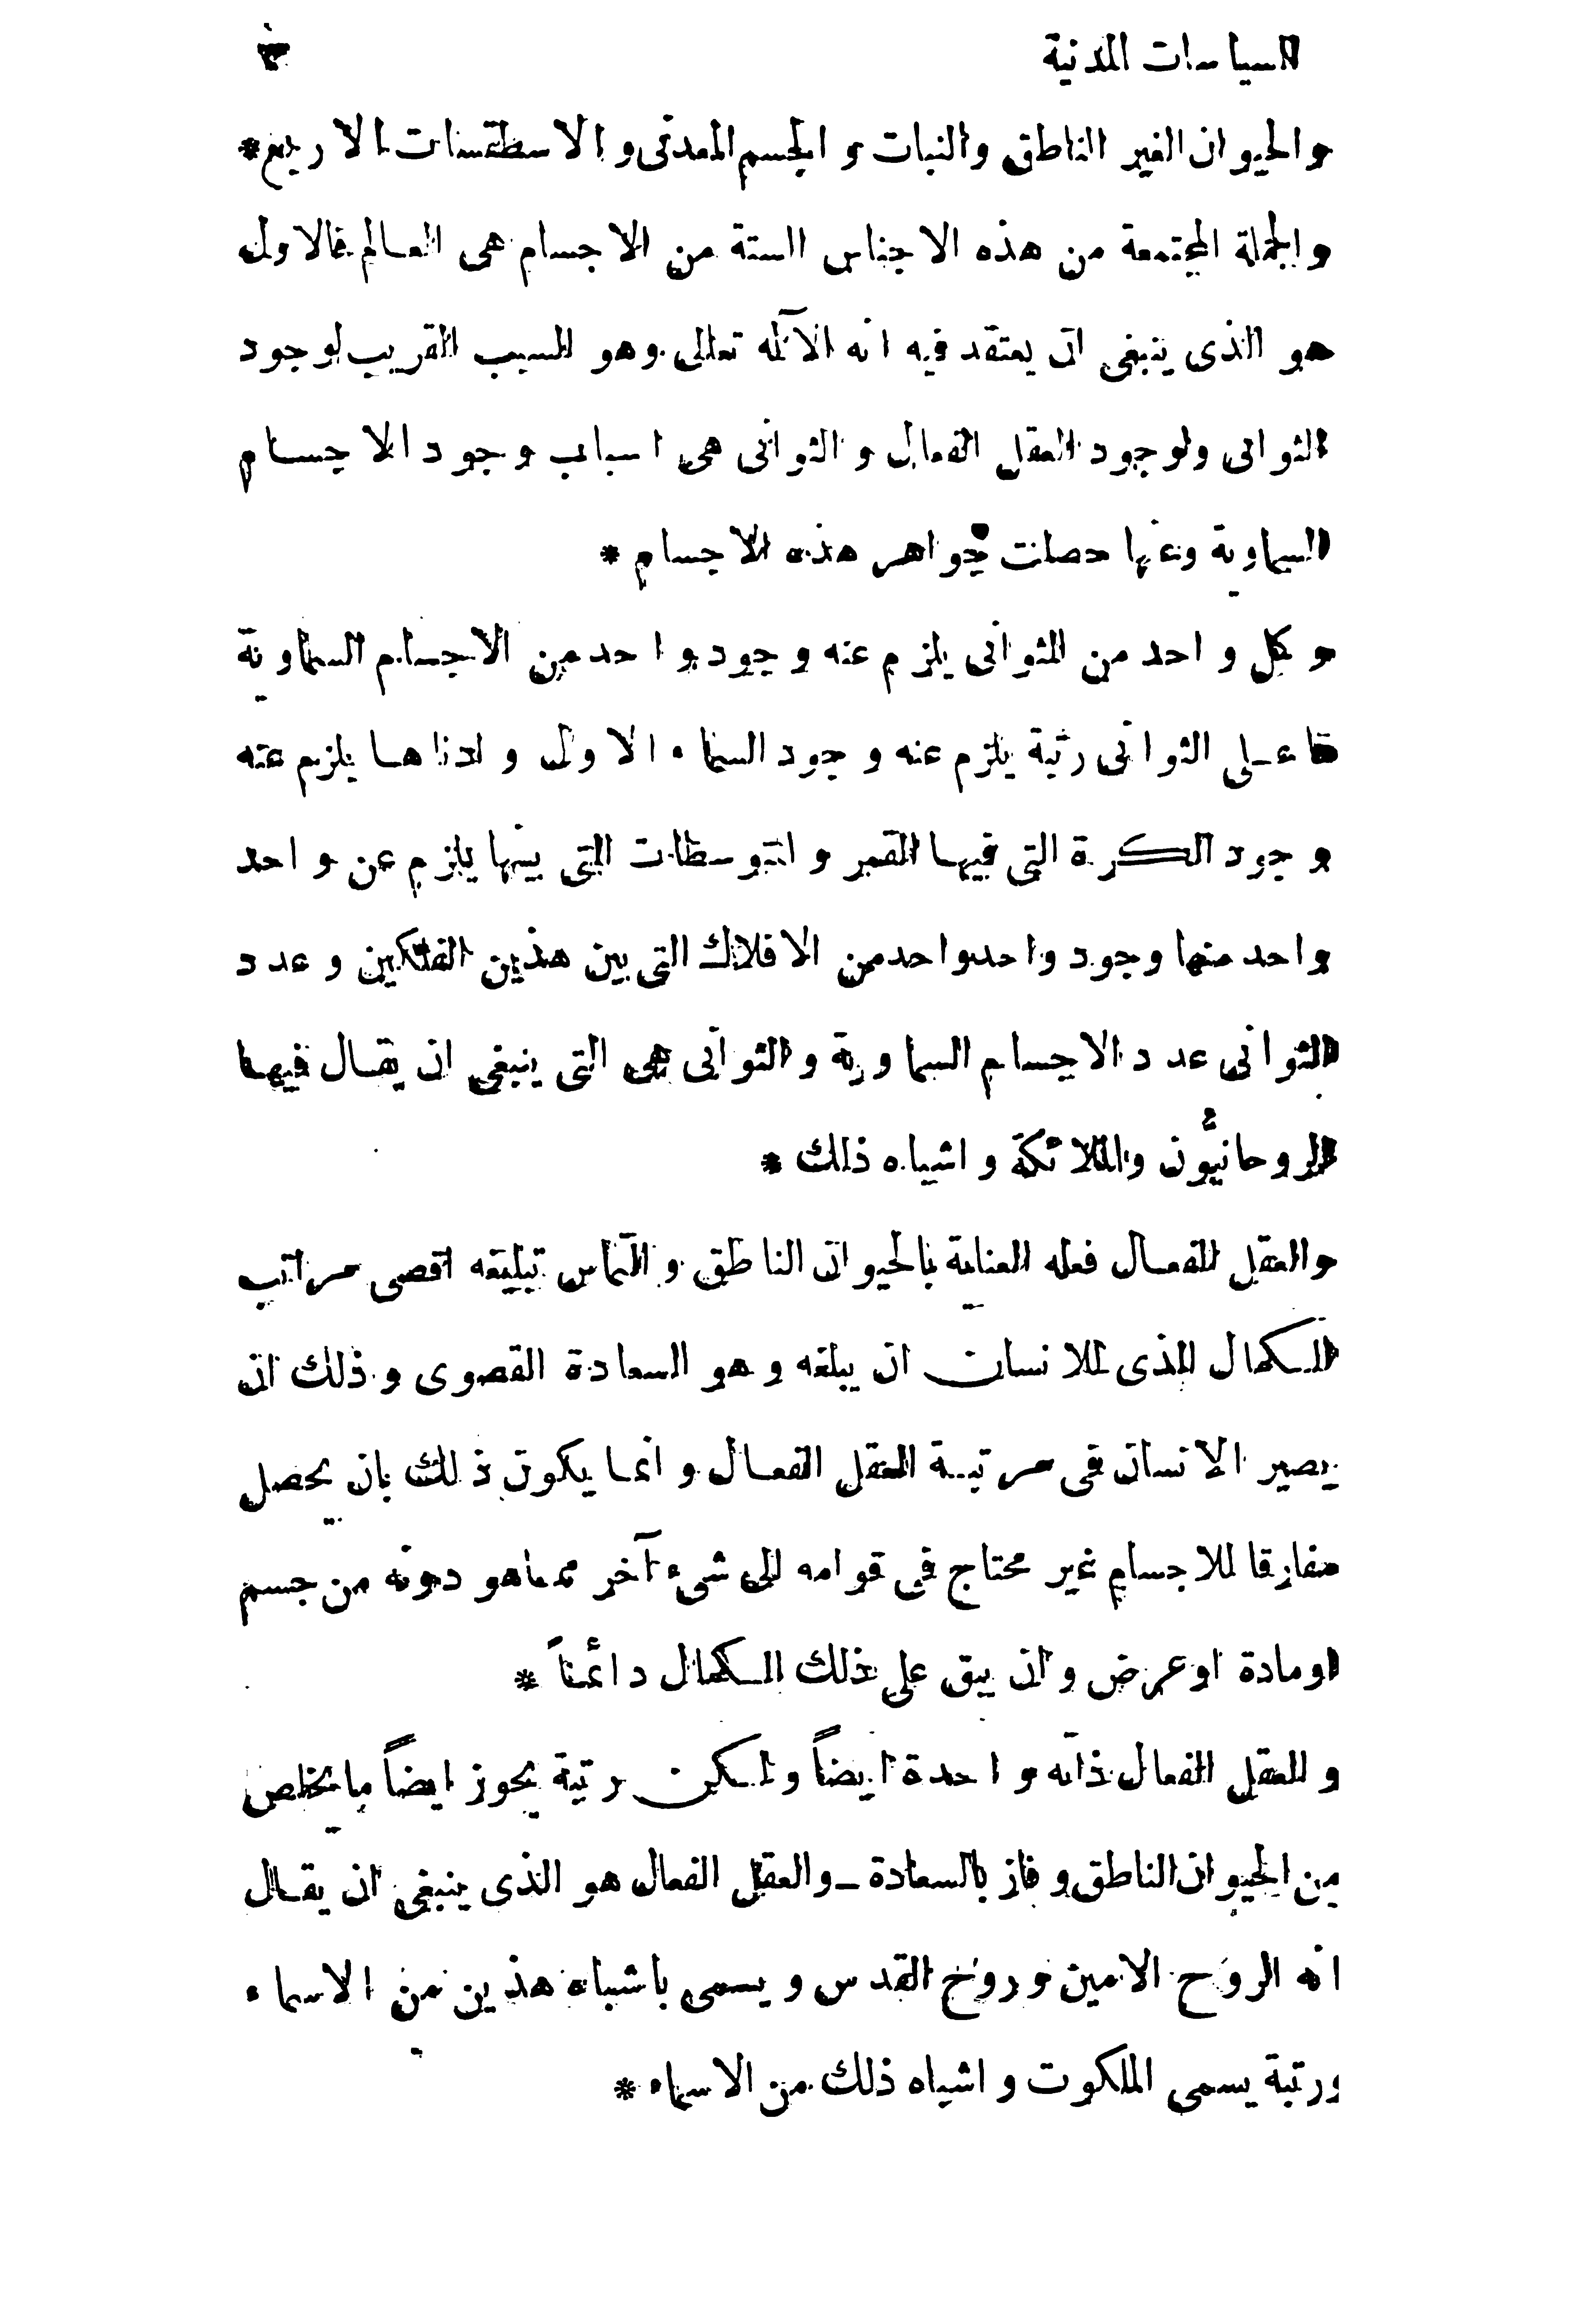 السياسات المدنية ٣
والحيوان الغير الناطق والنبات والجسم المعدني والاسطقسات الاربع*
والجملة المجتمعة من هذه الاجناس الستة من الاجسام هى العالم فالاول
هو الذى ينبغى ان يعتقد فيه انه الآله تعالى وهو السبب القريب لوجود
الثوانى ولوجود العقل الفعال والثوانى هى اسباب وجود الاجسام
السماوية وعنها حصلت جواهر هذه الاجسام *
وكل واحد من الثوانى يلزم عنه وجود واحد من الاجسام السماوية
فاعلى الثوانى رتبة يلزم عنه وجود السماء الاولى وادناها يلزم عنه
وجود الكرة التى فيها القمر والمتوسطات التى بينها يلزم عن واحد
واحد منها وجود واحد واحد من الافلاك التى بين هذين الفلكين وعدد
الثوانى عدد الاجسام السماوية والثوانى هى التى ينبغى ان يقال فيها
الروحانيّون والملائكة واشباه ذلك *
والعقل الفعال فعله العناية بالحيوان الناطق والتماس تبليغه اقصى مراتب
الكمال الذى للانسان ان يبلغه وهو السعادة القصوى وذلك ان
يصير الانسان فى مرتبة العقل الفعال وانما يكون ذلك بان يحصل
مفارقا للاجسام غير محتاج فى قوامه الى شىء آخر مما هو دونه من جسم
او مادة او عرض وان يبقى على ذلك الكمال دائماً *
والعقل الفعال ذاته واحدة ايضاً ولكن رتبة يحوز ايضاً ما يخلص
من الحيوان الناطق وفاز بالسعادة - والعقل الفعال هو الذى ينبغى ان يقال
انه الروح الامين وروح القدس ويسمى باشباه هذين من الاسماء
ورتبة يسمى الملكوت واشباه ذلك من الاسماء *